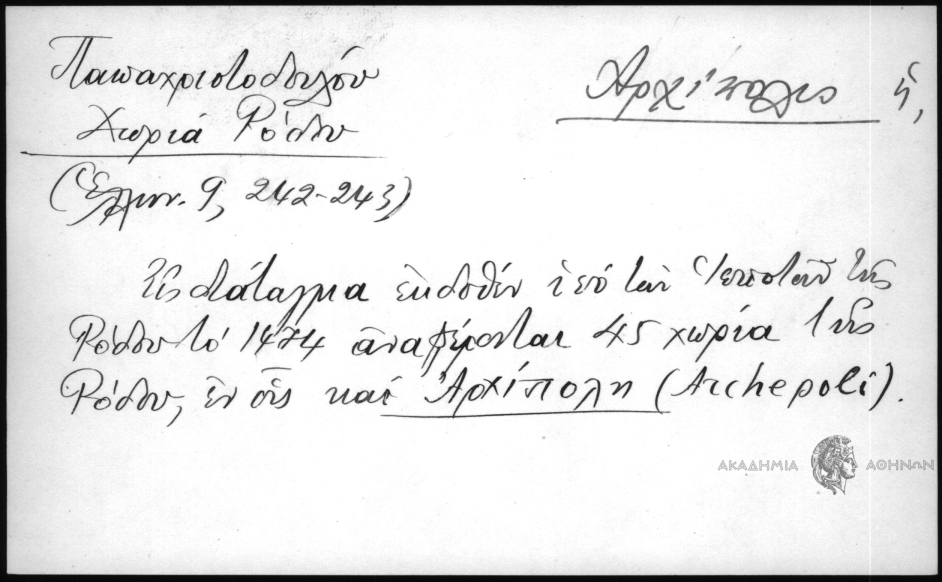 Παπαχριστοδούλου
Χωριά Ρόδου
(Ἑλλην. 9, 242-243)
Ἀρχίπολις ἡ,
Εἰς διάταγμα ἐκδοθὲν ὑπὸ τῶν Ἱπποτῶν τῆς
Ρόδου τὸ 1474 ἀναφέρονται 45 χωρία τῆς
Ρόδου, ἐν οἷς καὶ Ἀρχίπολη (Archepoli).
ΑΚΑΔΗΜΙΑ ΑΘΗΝΩΝ